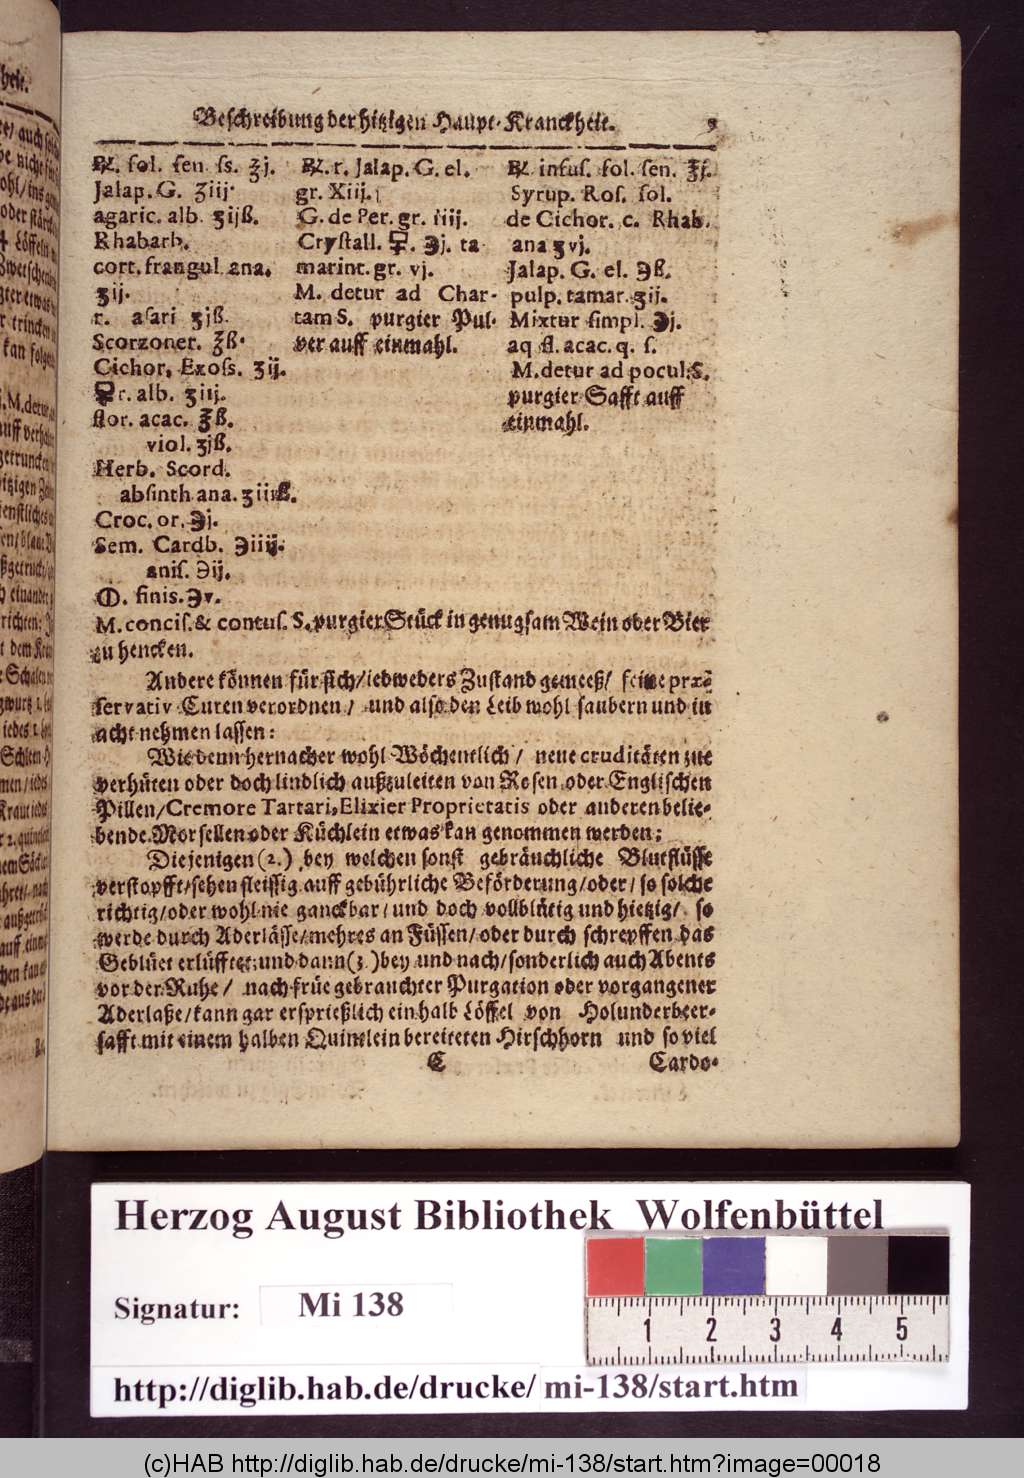 Beschreibung der hitzigen Haupt-Kranckheit. 9
℞. fol. sen. ss. ℥j.
Jalap. G. ʒiij.
agaric. alb. ʒijß.
Rhabarb.
cort. frangul. ana.
ʒij.
r. asari ʒjß.
Scorzoner. ℥ß.
Cichor. Exoss. ʒij.
🜿r. alb. ʒiij.
flor. acac. ℥ß.
viol. ʒjß.
Herb. Scord.
absinth ana. ʒiiß.
Croc. or. ℈j.
Sem. Cardb. ℈iiij.
anis. ℈ij.
finis. ℈v.
℞. r. Jalap. G. el.
gr. Xiij.
G. de Per. gr. iiij.
Crystall. 🜿. ℈j. ta
marint. gr. vj.
M. detur ad Char-
tam S. purgier Pul-
ver auff einmahl.
℞ infus. fol. sen. ℥j.
Syrup. Ros. sol.
de Cichor. c. Rhab.
ana ʒvj.
Jalap. G. el. ℈ß.
pulp. tamar. ʒij.
Mixtur simpl. ℈j.
aq fl. acac. q. s.
M. detur ad pocul. S.
purgier Safft auff
einmahl.
M. concis. & contus. S. purgier Stück in genugsam Wein oder Bier
zu hencken.
Andere können für sich/ iedweders Zustand gemeeß/ feine præ-
servativ Curen verordnen/ und also den Leib wohl saubern und in
acht nehmen lassen:
Wie denn hernacher wohl Wöchentlich/ neue cruditäten zue
verhüten oder doch lindlich außzuleiten von Rosen oder Englischen
Pillen/ Cremore Tartari, Elixier Proprietatis oder anderen belie-
bende Morsellen oder Küchlein etwas kan genommen werden;
Diejenigen (2.) bey welchen sonst gebräuchliche Blutflüsse
verstopfft/ sehen fleissig auff gebührliche Beförderung/ oder/ so solche
richtig/ oder wohl nie ganckbar/ und doch vollblütig und hietzig/ so
werde durch Aderlässe/ mehres an Füssen/ oder durch schrepffen das
Geblüet erlüfftet; und dann (3.) bey und nach/ sonderlich auch Abents
vor der Ruhe/ nach früe gebrauchter Purgation oder vorgangener
Aderlaße/ kann gar ersprießlich ein halb Löffel von Holunderbeer-
safft mit einem halben Quintlein bereiteten Hirschhorn und so viel
C Cardo-
Herzog August Bibliothek Wolfenbüttel
Signatur: Mi 138
1 2 3 4 5
http://diglib.hab.de/drucke/ mi-138/start.htm
(c)HAB http://diglib.hab.de/drucke/mi-138/start.htm?image=00018